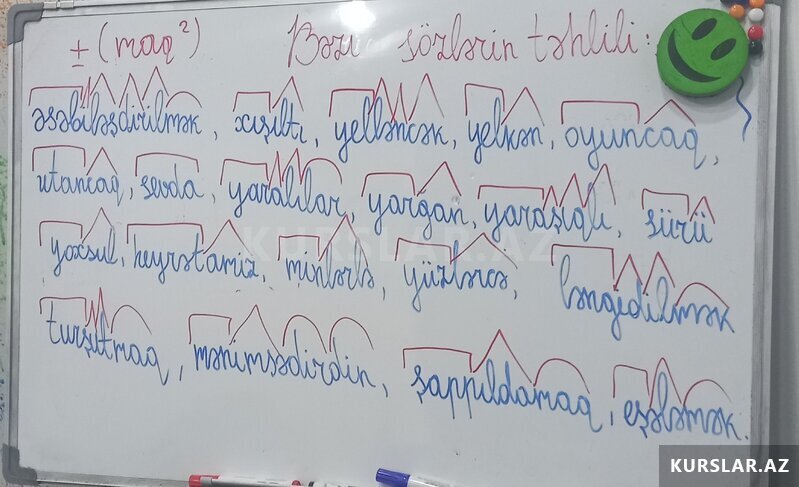 ± (maq²) Bəzi sözlərin təhlili:
əsəbiləşdirilmək, xışıltı, yelləncək, yelkən, oyuncaq,
utancaq, sevda, yaralılar, yarğan, yaraşıqlı, sürü
yoxsul, heyrətamiz, minlərlə, yüzlərcə, ləngidilmək
turşutmaq, mənimsədirdin, şappıldamaq, eşələmək.
KURSLAR.AZ
KURSLAR.AZ